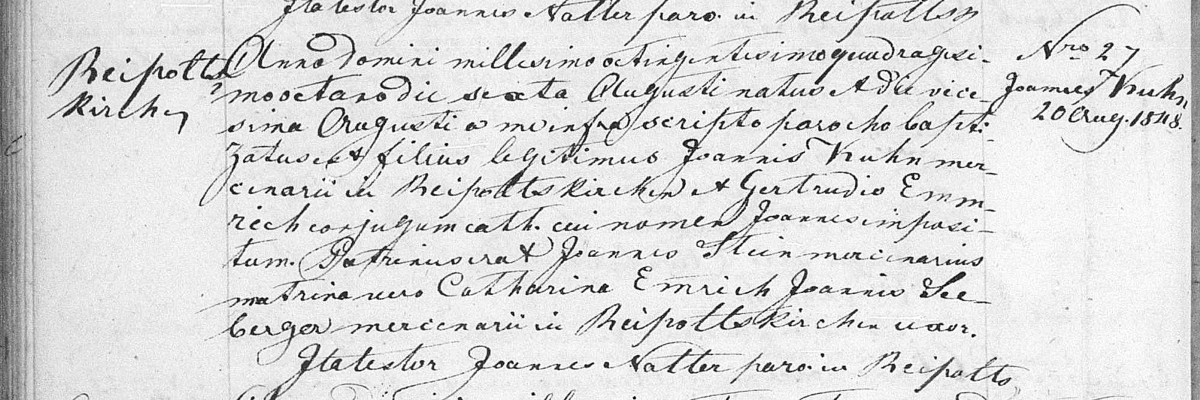 Ita testor Joannes Natter paro. in Reipoltsk
Reipolts
kirchen
Anno domini millesimo octingentesimo quadragesi-
mo octavo die sexta Augusti natus & die vice-
sima Augusti a me infra scripto parocho bapti-
zatus est filius legitimus Joannis Kuhn mer-
cenarii in Reipoltskirchen et Gertrudis Emm-
rich conjugum cath. cui nomen Joannes imposi-
tum. Patrinus erat Joannes Stein mercenarius
matrina vero Catharina Emrich Joannis See-
berger mercenarii in Reipoltskirchen uxor.
Ita testor Joannes Natter paro. in Reipolts
Nro 27
Joannes Kuhn
20 Aug. 1848.